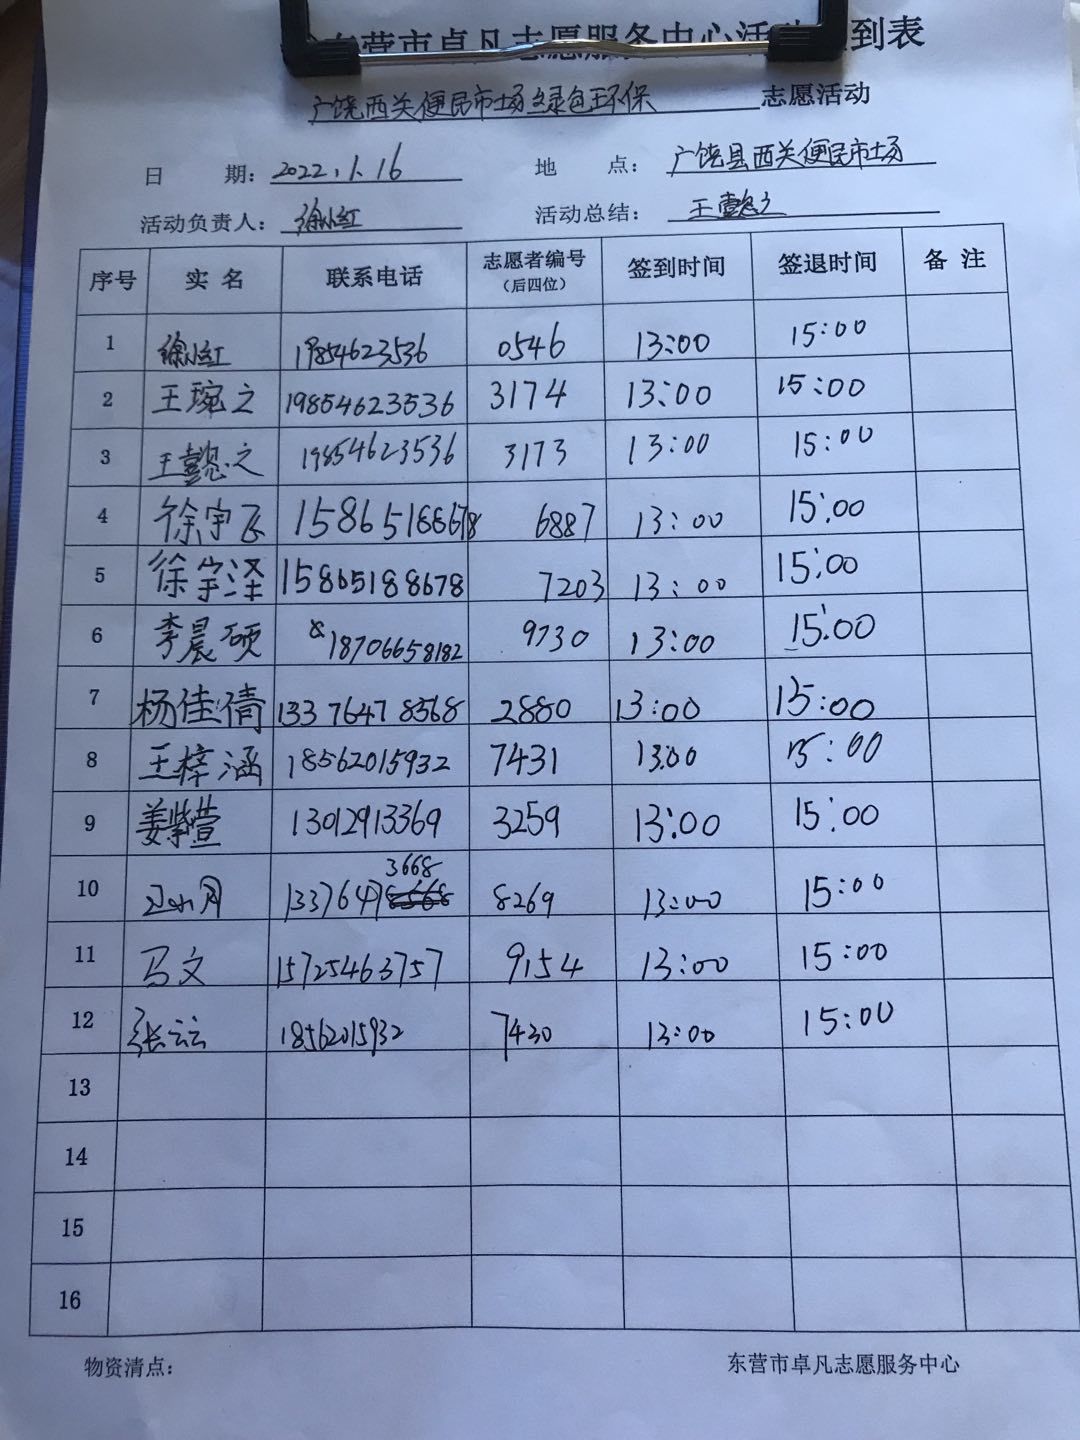 东营市卓凡志愿服务中心活动签到表
广饶西关便民市场绿色环保 志愿活动
日 期: 2022.1.16 地 点: 广饶县西关便民市场
活动负责人: 徐小红 活动总结: 王懿之
序号 实 名 联系电话 志愿者编号(后四位) 签到时间 签退时间 备 注
1 徐小红 19854623536 0546 13:00 15:00
2 王琬之 19854623536 3174 13:00 15:00
3 王懿之 19854623536 3173 13:00 15:00
4 徐宇飞 15865188678 6887 13:00 15:00
5 徐宇泽 15865188678 7203 13:00 15:00
6 李晨硕 18706658182 9730 13:00 15:00
7 杨佳倩 13376478568 2880 13:00 15:00
8 王梓涵 18562015932 7431 13:00 15:00
9 姜紫萱 13012913369 3259 13:00 15:00
10 13376473668 8269 13:00 15:00
11 马文 15725463757 9154 13:00 15:00
12 张云云 18562015932 7430 13:00 15:00
13
14
15
16
物资清点: 东营市卓凡志愿服务中心